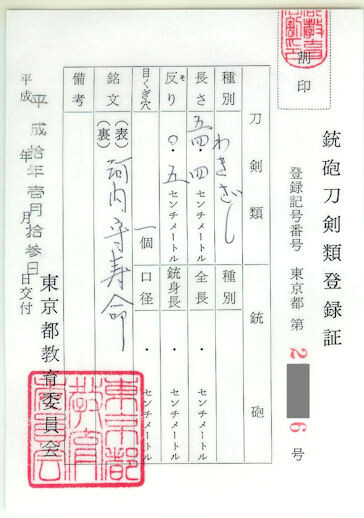 銃砲刀剣類登録証
登録記号番号 東京都 第 2 6 号
割印
刀剣類
銃砲
種別 わきざし
種別
長さ 五四・四 センチメートル
全長 ・ センチメートル
反り ○・五 センチメートル
そ
銃身長 ・ センチメートル
目くぎ穴 一個
口径 ・ センチメートル
銘文 (表) 河内守寿命
(裏)
備考
平成拾年壱月拾参日
平成 年 月 日交付
東京都教育委員会
東京都
教育
委員会